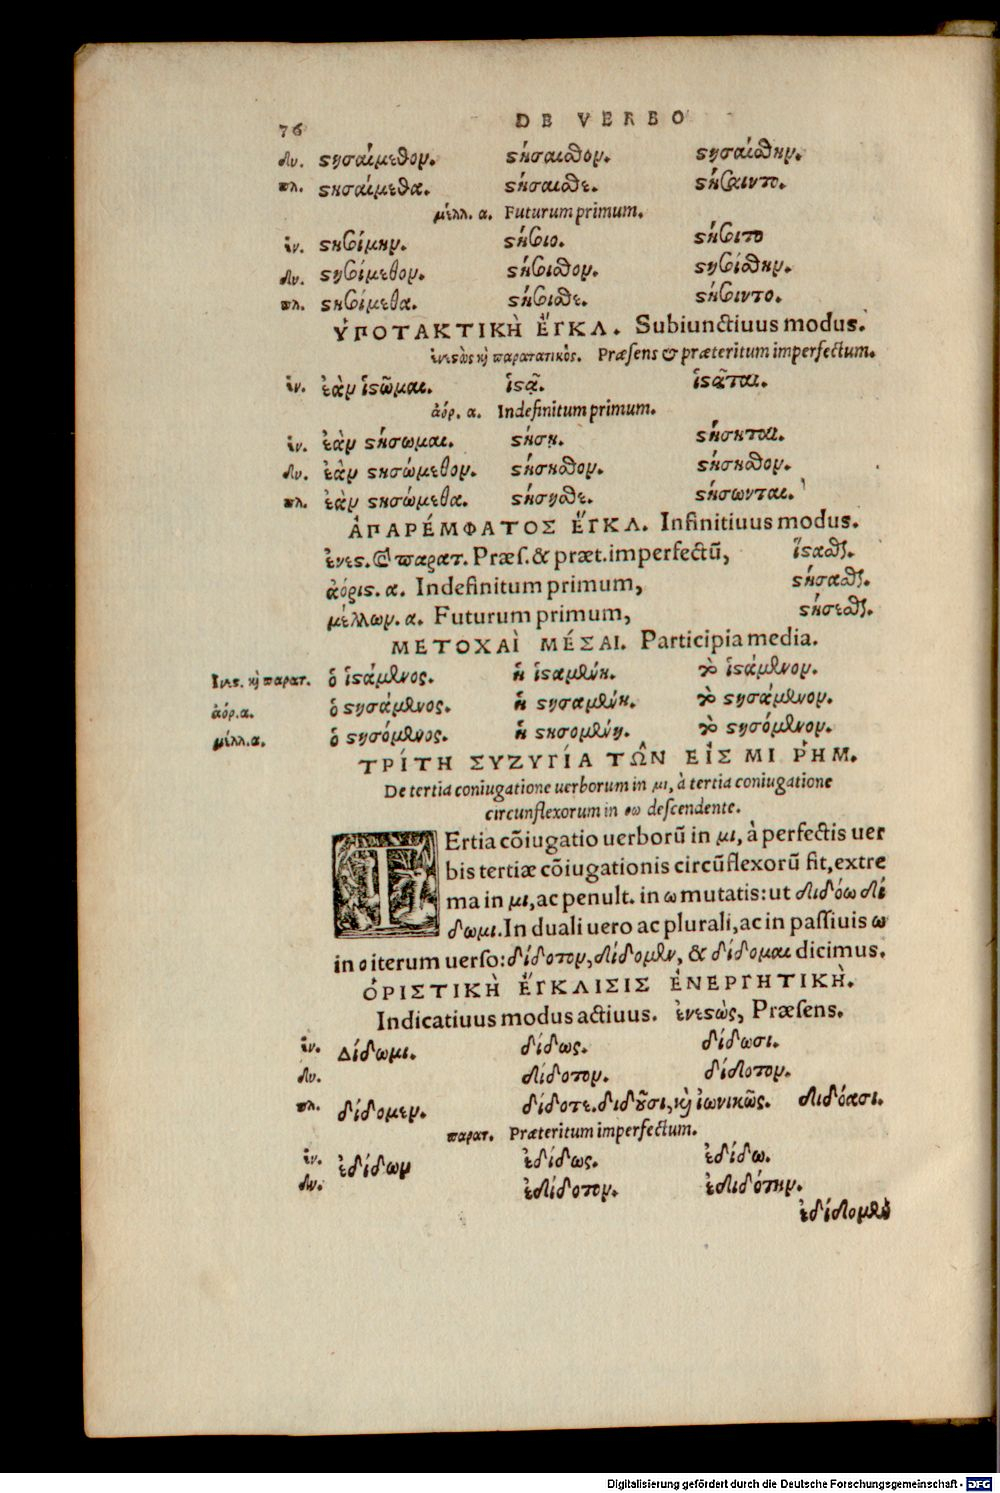 76 DE VERBO
δυ. στησαίμεθον. στήσαισθον. στησαίσθην.
πλ. στησαίμεθα. στήσαισθε. στήσαιντο.
μέλλ. α. Futurum primum.
ἑν. στησοίμην. στήσοιο. στήσοιτο
δυ. στησοίμεθον. στήσοισθον. στησοίσθην.
πλ. στησοίμεθα. στήσοισθε. στήσοιντο.
ὙΠΟΤΑΚΤΙΚῊ ἜΓΚΛ. Subiunctiuus modus.
ἐνεστὼς καὶ παρατατικὸς. Præsens & præteritum imperfectum.
ἑν. ἐὰν ἱστῶμαι. ἱστᾷ. ἱστᾶται.
ἀόρ. α. Indefinitum primum.
ἑν. ἐὰν στήσωμαι. στήσῃ. στήσηται.
δυ. ἐὰν στησώμεθον. στήσησθον. στήσησθον.
πλ. ἐὰν στησώμεθα. στήσησθε. στήσωνται.
ἈΠΑΡΈΜΦΑΤΟΣ ἜΓΚΛ. Infinitiuus modus.
ἐνεστ. καὶ παρατ. Præs. & præt. imperfectũ, ἵστασθαι.
ἀόριστ. α. Indefinitum primum, στήσασθαι.
μέλλων. α. Futurum primum, στήσεσθαι.
ΜΕΤΟΧΑῚ ΜΈΣΑΙ. Participia media.
Ἐνεστ. καὶ παρατ. ὁ ἱστάμενος. ἡ ἱσταμένη. τὸ ἱστάμενον.
ἀόρ. α. ὁ στησάμενος. ἡ στησαμένη. τὸ στησάμενον.
μέλλ. α. ὁ στησόμενος. ἡ στησομένη. τὸ στησόμενον.
ΤΡΊΤΗ ΣΥΖΥΓΊΑ ΤΩ͂Ν ΕἸΣ ΜΙ ῬΗΜ.
De tertia coniugatione uerborum in μι, à tertia coniugatione
circunflexorum in οω descendente.
TErtia cõiugatio uerborũ in μι, à perfectis uer
bis tertiæ cõiugationis circũflexorũ fit, extre
ma in μι, ac penult. in ω mutatis: ut διδόω δί
δωμι. In duali uero ac plurali, ac in passiuis ω
in ο iterum uerso: δίδοτον, δίδομεν, & δίδομαι dicimus.
ὉΡΙΣΤΙΚῊ ἜΓΚΛΙΣΙΣ ἘΝΕΡΓΗΤΙΚῊ.
Indicatiuus modus actiuus. ἐνεστὼς, Præsens.
ἑν. Δίδωμι. δίδως. δίδωσι.
δυ. δίδοτον. δίδοτον.
πλ. δίδομεν. δίδοτε. διδοῦσι, καὶ ἰωνικῶς. διδόασι.
παρατ. Præteritum imperfectum.
ἑν. ἐδίδων ἐδίδως. ἐδίδω.
δυ. ἐδίδοτον. ἐδιδότην.
ἐδίδομεν
Digitalisierung gefördert durch die Deutsche Forschungsgemeinschaft - DFG